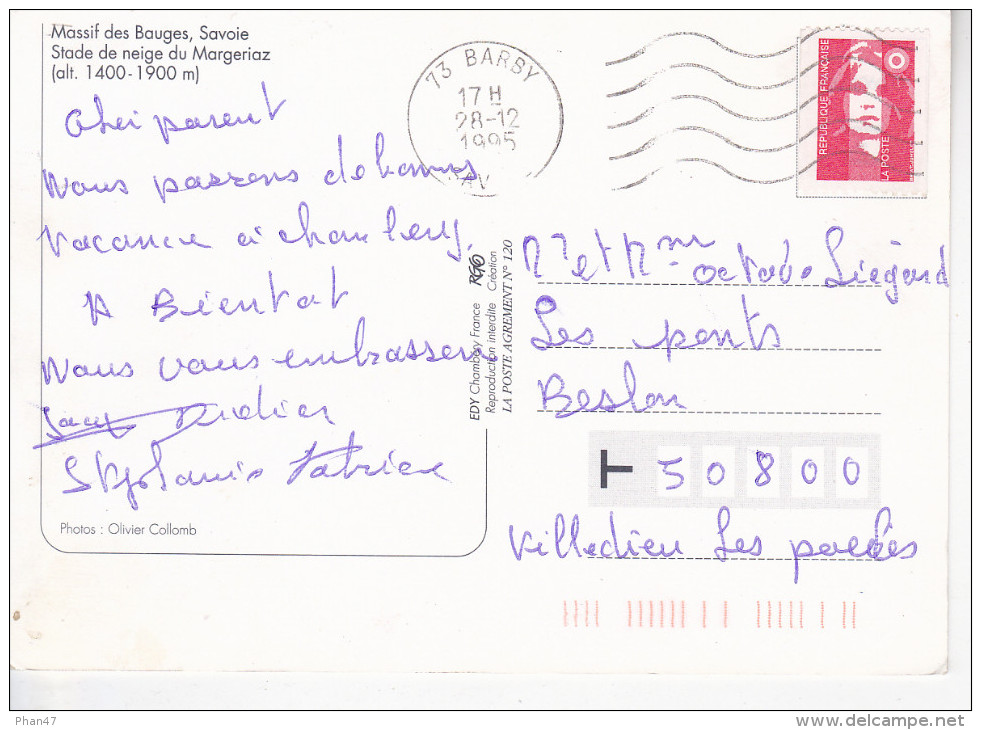 Massif des Bauges, Savoie
Stade de neige du Margeriaz
(alt. 1400-1900 m)
Cher parent
Nous passons de bonnes
vacance à chambery.
A Bientot
Nous vous embrassons
Didier
Stephanie Patrice
Photos : Olivier Collomb
EDY Chambéry France
Reproduction interdite Création
LA POSTE AGREMENT N° 120
73 BARBY
17 H
28-12
1995
SAV
REPUBLIQUE FRANÇAISE
LA POSTE
Mr et Mme octave Liegard
Les ponts
Beslon
T 50800
Villedieu Les poeles
Phan47
www.delcampe.net